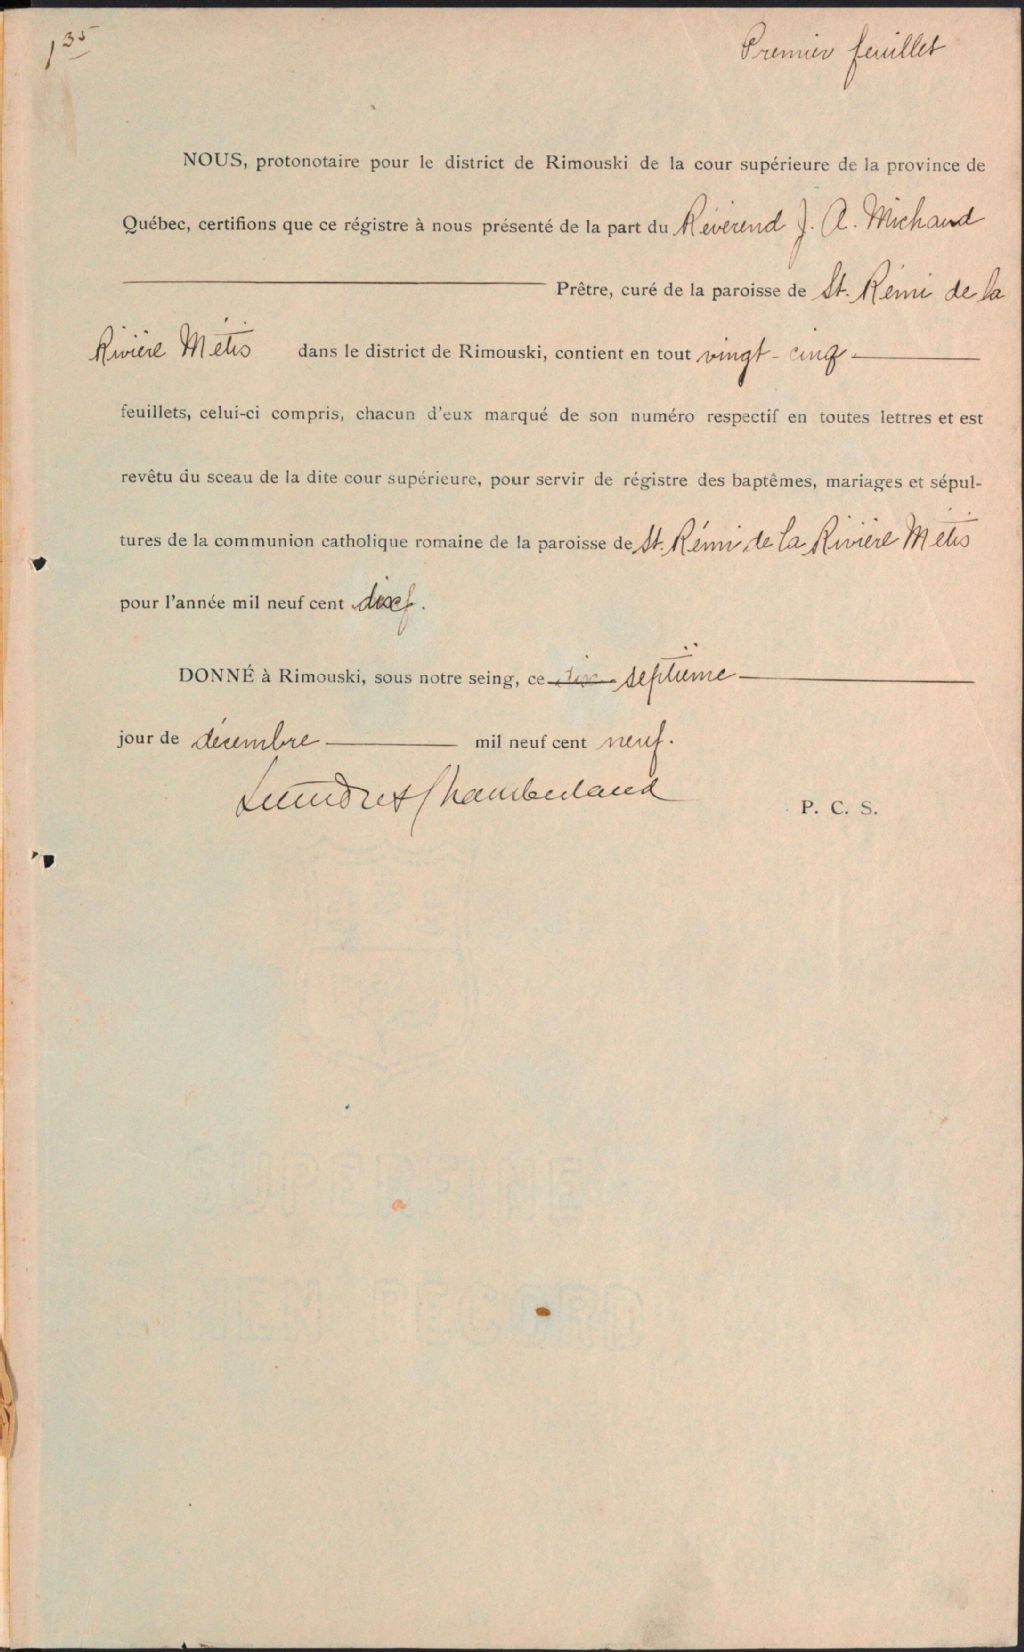 1 35
Premier feuillet
NOUS, protonotaire pour le district de Rimouski de la cour supérieure de la province de
Québec, certifions que ce régistre à nous présenté de la part du Révérend J. A. Michaud
Prêtre, curé de la paroisse de St. Rémi de la
Rivière Métis dans le district de Rimouski, contient en tout vingt-cinq
feuillets, celui-ci compris, chacun d'eux marqué de son numéro respectif en toutes lettres et est
revêtu du sceau de la dite cour supérieure, pour servir de régistre des baptêmes, mariages et sépul-
tures de la communion catholique romaine de la paroisse de St. Rémi de la Rivière Métis
pour l'année mil neuf cent dix.
DONNÉ à Rimouski, sous notre seing, ce dix septième
jour de décembre mil neuf cent neuf.
Chamberland
P. C. S.
SUPERFINE
LINEN RECORD